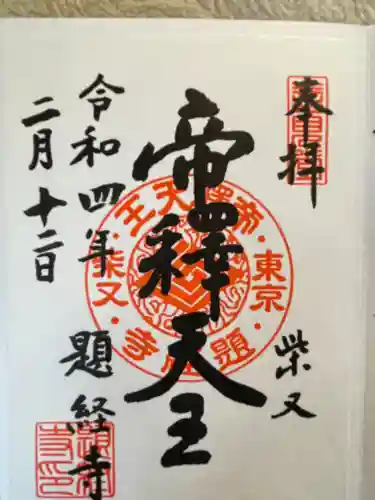 奉拝
柴又
帝釋天王
令和四年 題経寺
二月十二日
帝釋天王
東京
柴又
題経寺